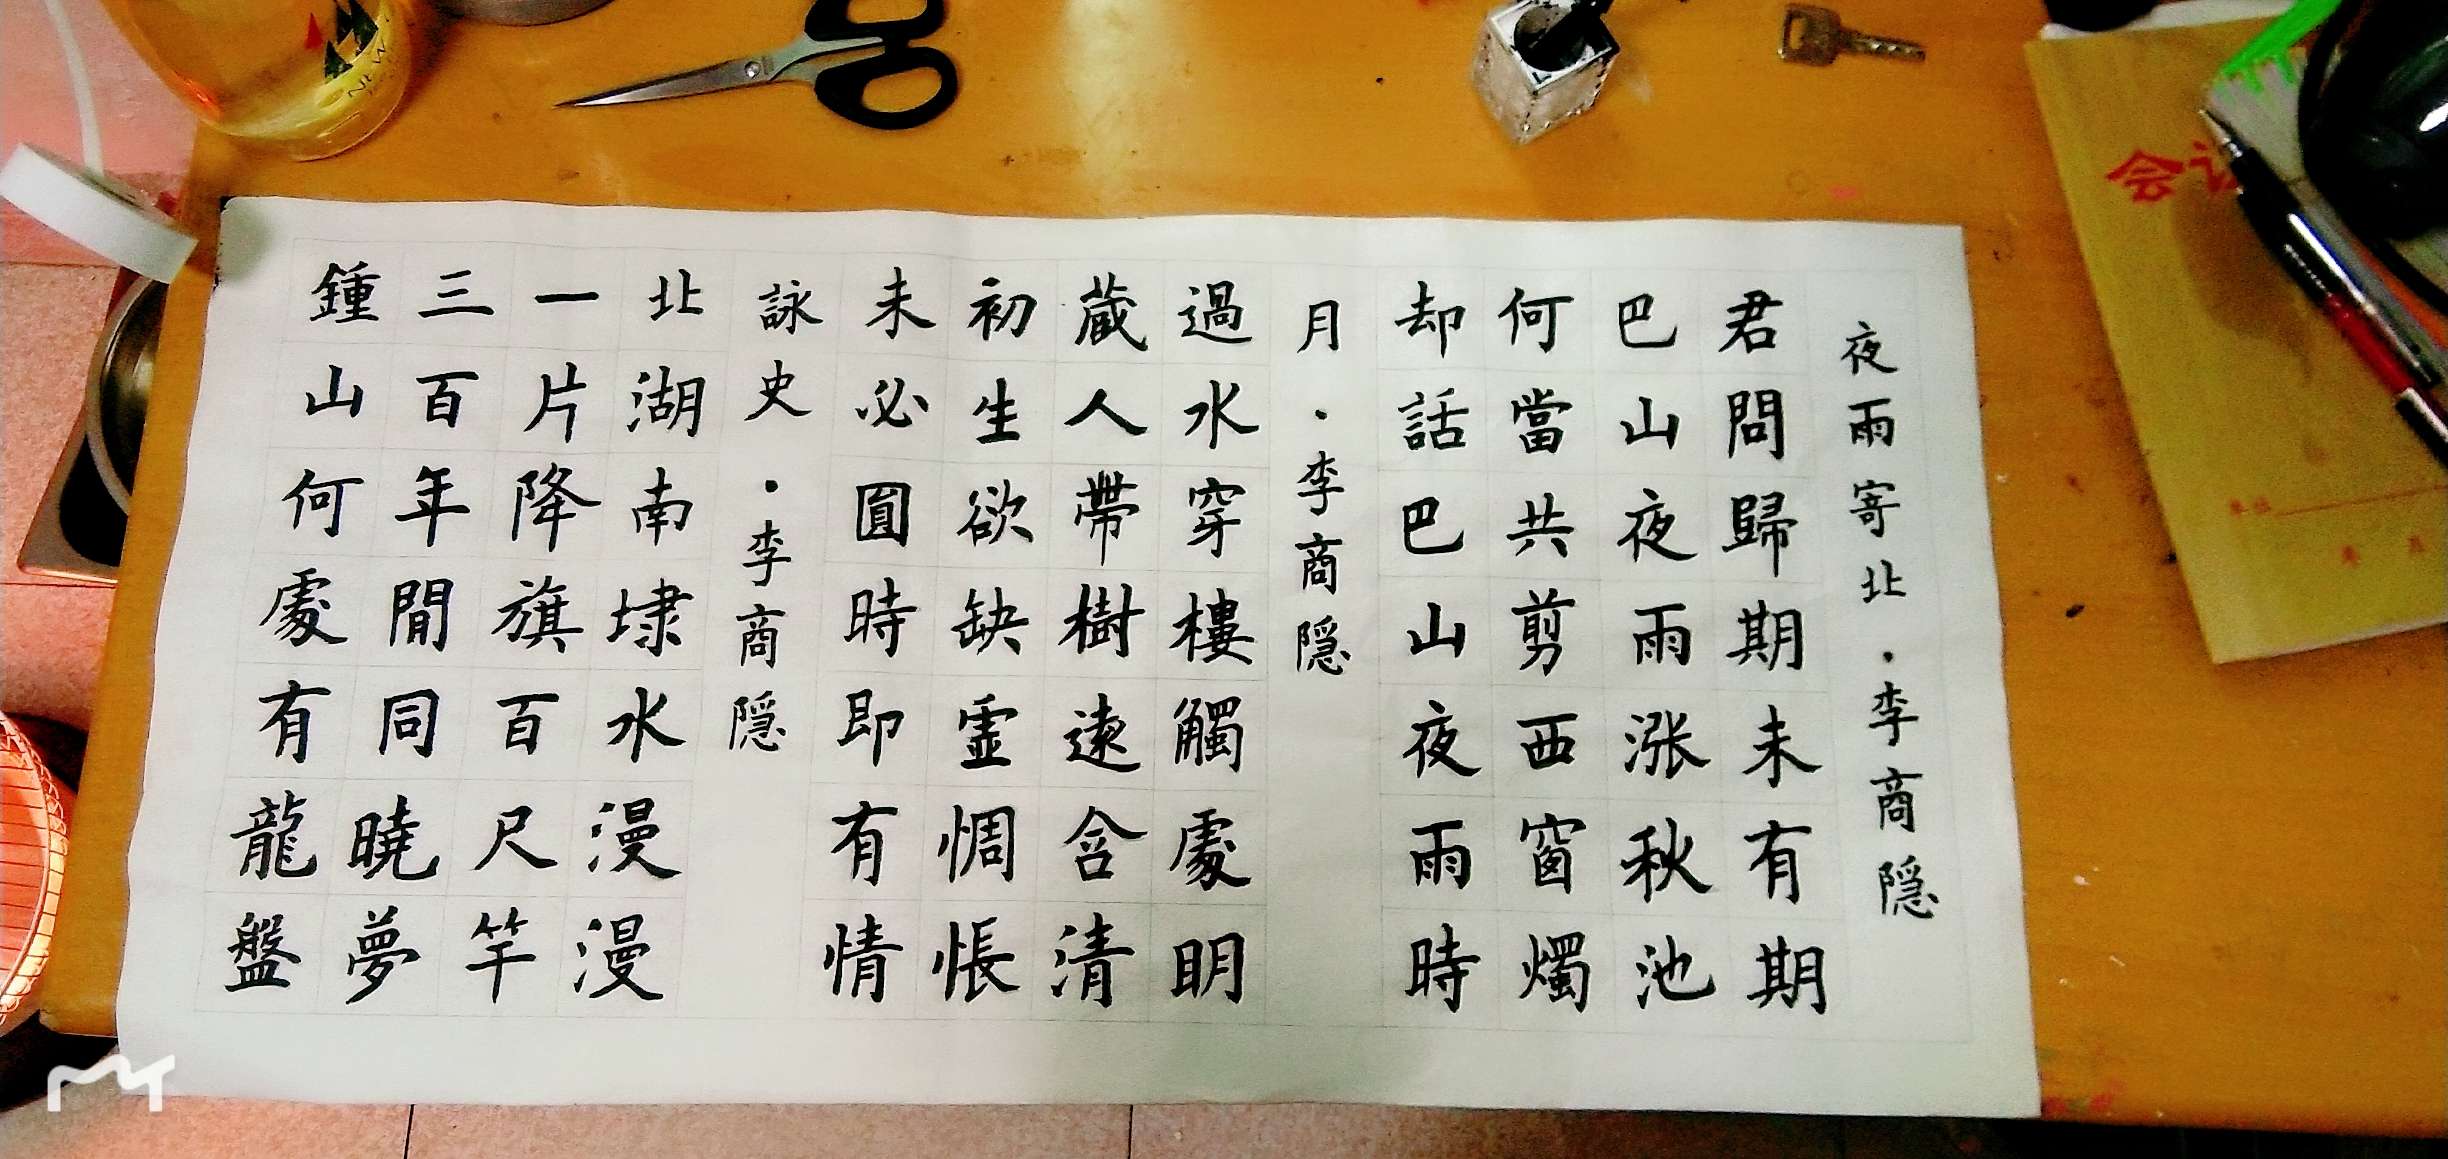 夜雨寄北·李商隐
君問歸期未有期
巴山夜雨涨秋池
何當共剪西窗燭
却話巴山夜雨時
月·李商隐
過水穿樓觸處明
蔵人帶樹遠含清
初生欲缺霊惆悵
未必圓時即有情
詠史·李商隐
北湖南埭水漫漫
一片降旗百尺竿
三百年間同曉夢
鍾山何處有龍盤
会议